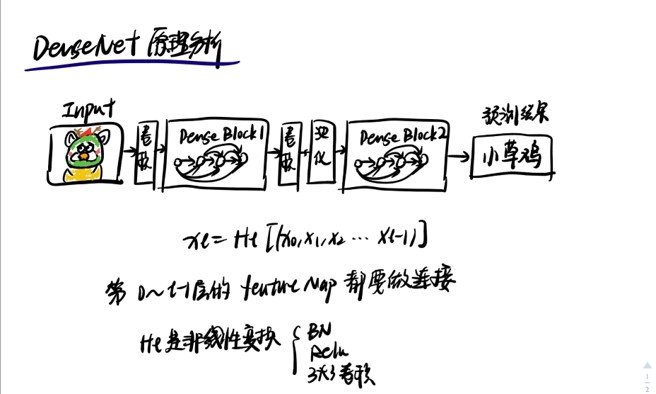 DenseNet 原理分析
Input
卷积
Dense Block1
卷积
池化
Dense Block2
预测结果
小草鸡
xℓ = Hℓ [(x0, x1, x2 ... xℓ-1)]
第 0~ℓ-1层的 feature Map 都要做连接
Hℓ 是非线性变换
BN
Relu
3x3卷积
1
2